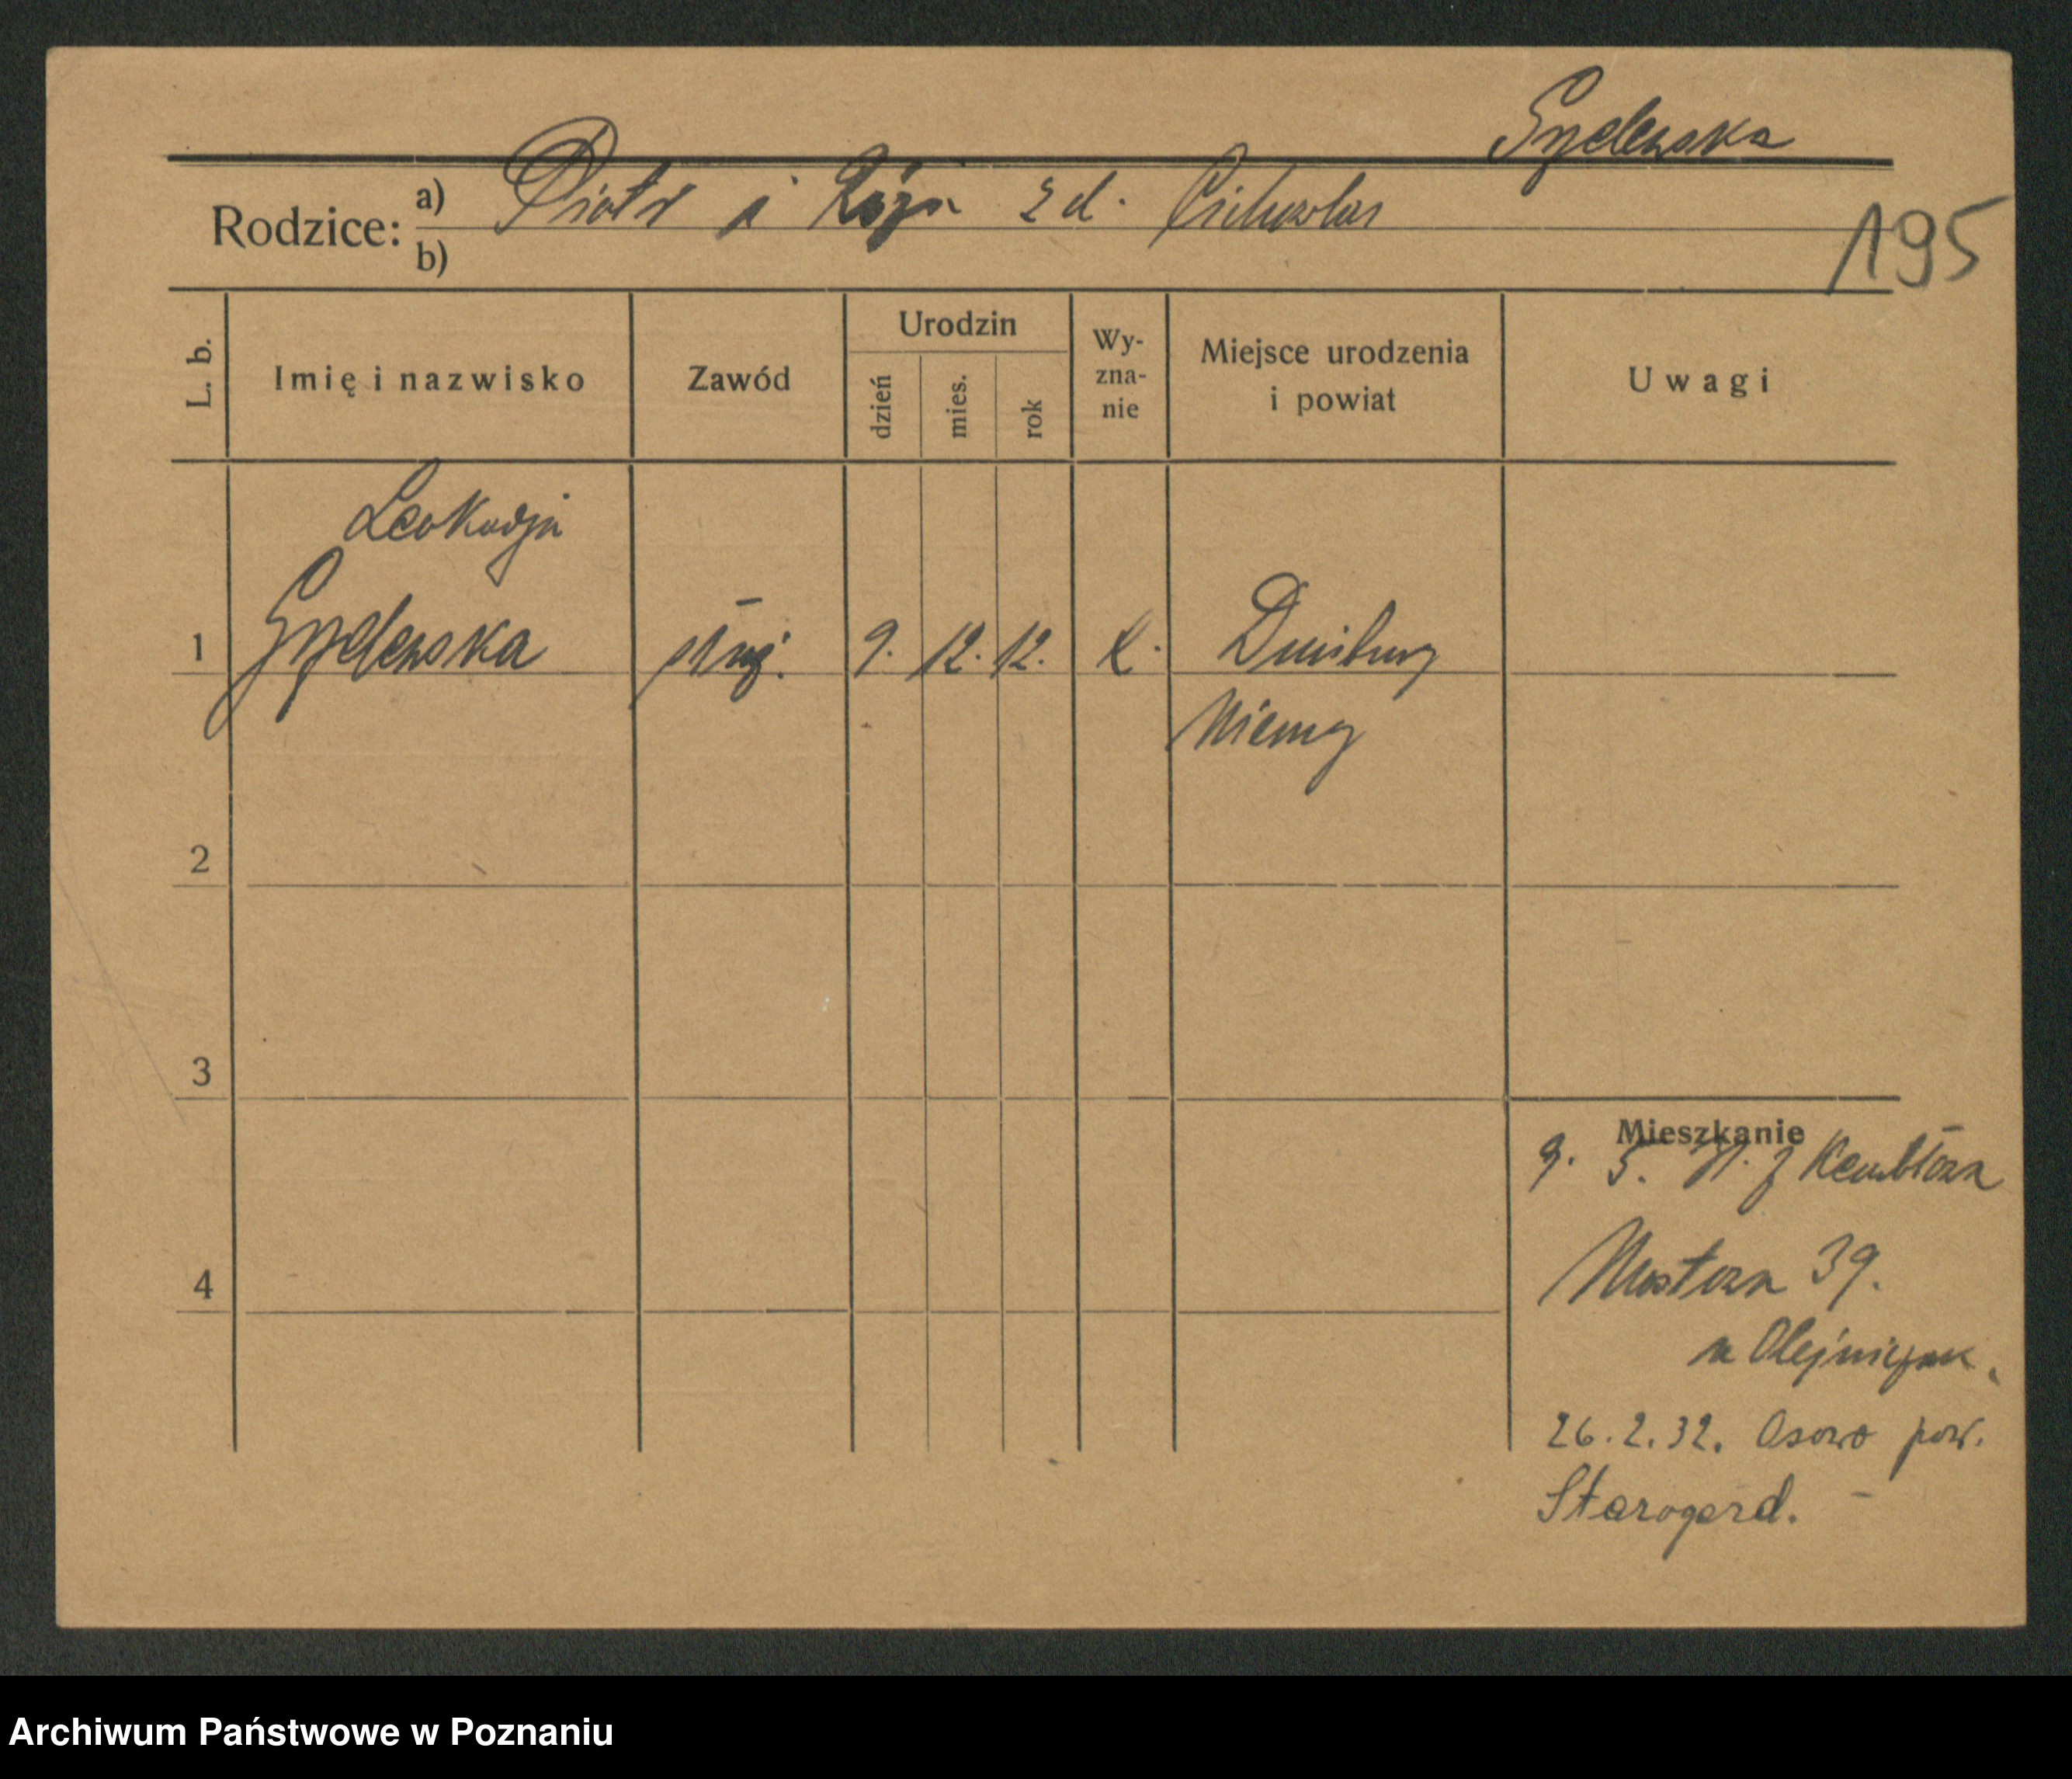 Gydewska
Rodzice: a) Piotr i Róża z d.
b)
195
L. b. Imię i nazwisko Zawód Urodzin dzień mies. rok Wy-zna-nie Miejsce urodzenia i powiat Uwagi
Leokadja
1 Gydewska służ. 9. 12. 12. k. Duisburg
Niemcy
2
3
Mieszkanie
9. 5. 31. z
4
Mostowa 39.
u Olejniczak.
26.2.32. Osowo pow.
Starogard.
Archiwum Państwowe w Poznaniu